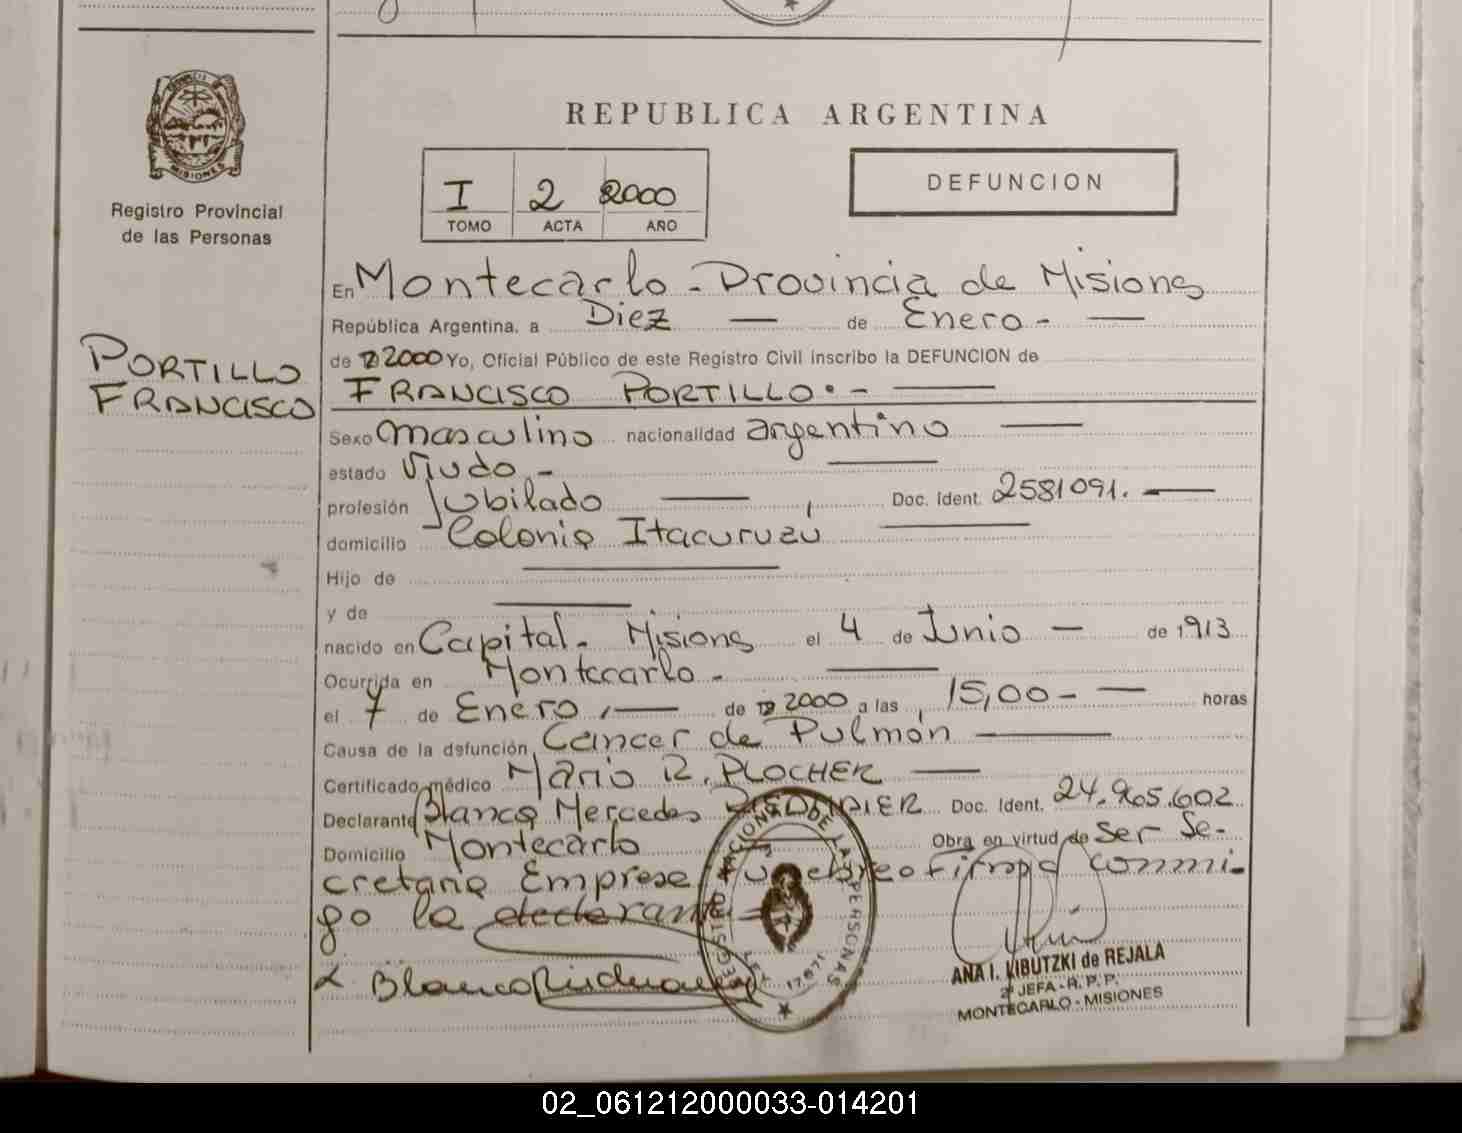 MISIONES
Registro Provincial
de las Personas
PORTILLO
FRANCISCO
REPUBLICA ARGENTINA
I 2 2000
TOMO ACTA AÑO
DEFUNCION
En Montecarlo - Provincia de Misiones
República Argentina, a Diez — de Enero - —
de 2000 Yo, Oficial Público de este Registro Civil inscribo la DEFUNCION de
FRANCISCO PORTILLO.- —
Sexo masculino nacionalidad argentino —
estado Viudo - —
profesión Jubilado — , Doc. Ident. 2581091. —
domicilio Colonia Itacuruzú —
Hijo de —
y de —
nacido en Capital - Misiones el 4 de Junio — de 1913
Ocurrida en Montecarlo - —
el 7 de Enero, — de 2000 a las 15,00 - — horas
Causa de la defunción Cancer de Pulmón —
Certificado médico Mario R. PLOCHER —
Declarante Blanca Mercedes Doc. Ident. 24.965.602
Domicilio Montecarlo Obra en virtud de Ser Se-
cretaria Empresa Funebre firma conmi-
go la declarante
x Blanca
REGISTRO NACIONAL DE LAS PERSONAS
LEY 17671
ANA I. KIBUTZKI de REJALA
2ª JEFA - R. P. P.
MONTECARLO - MISIONES
02_061212000033-014201